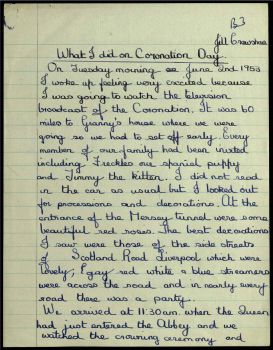 B3
Jill Crawshaw
What I did on Coronation Day.
On Tuesday morning on June 2nd 1953
I woke up feeling very excited because
I was going to watch the television
broadcast of the Coronation. It was 60
miles to Granny's house where we were
going so we had to set off early. Every
member of our family had been invited
including Freckles our spaniel puppy
and Timmy the kitten. I did not read
in the car as usual but I looked out
for processions and decorations. At the
entrance of the Mersey tunnel were some
beautiful red roses. The best decorations
I saw were those of the side streets
of Scotland Road Liverpool which were
lovely; gay red white & blue streamers
were across the road and in nearly every
road there was a party.
We arrived at 11.30am. when the Queen
had just entered the Abbey and we
watched the crowning ceremony and